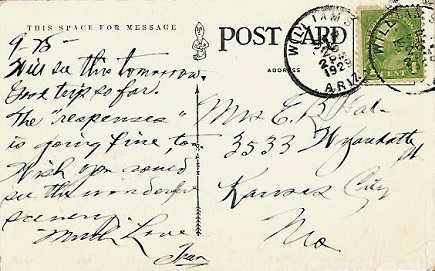 THIS SPACE FOR MESSAGE
POST CARD
ADDRESS
WILLIAMS
2 PM
ARIZ.
WILLIAMS
1
CENT
Will see this tomorrow.
Good trip so far.
The "responses"
is going fine, too
Wish you could
see the wonderful
scenery.
Much Love
Mrs E. B.
3533 Wyandotte
St
Kansas City
Mo